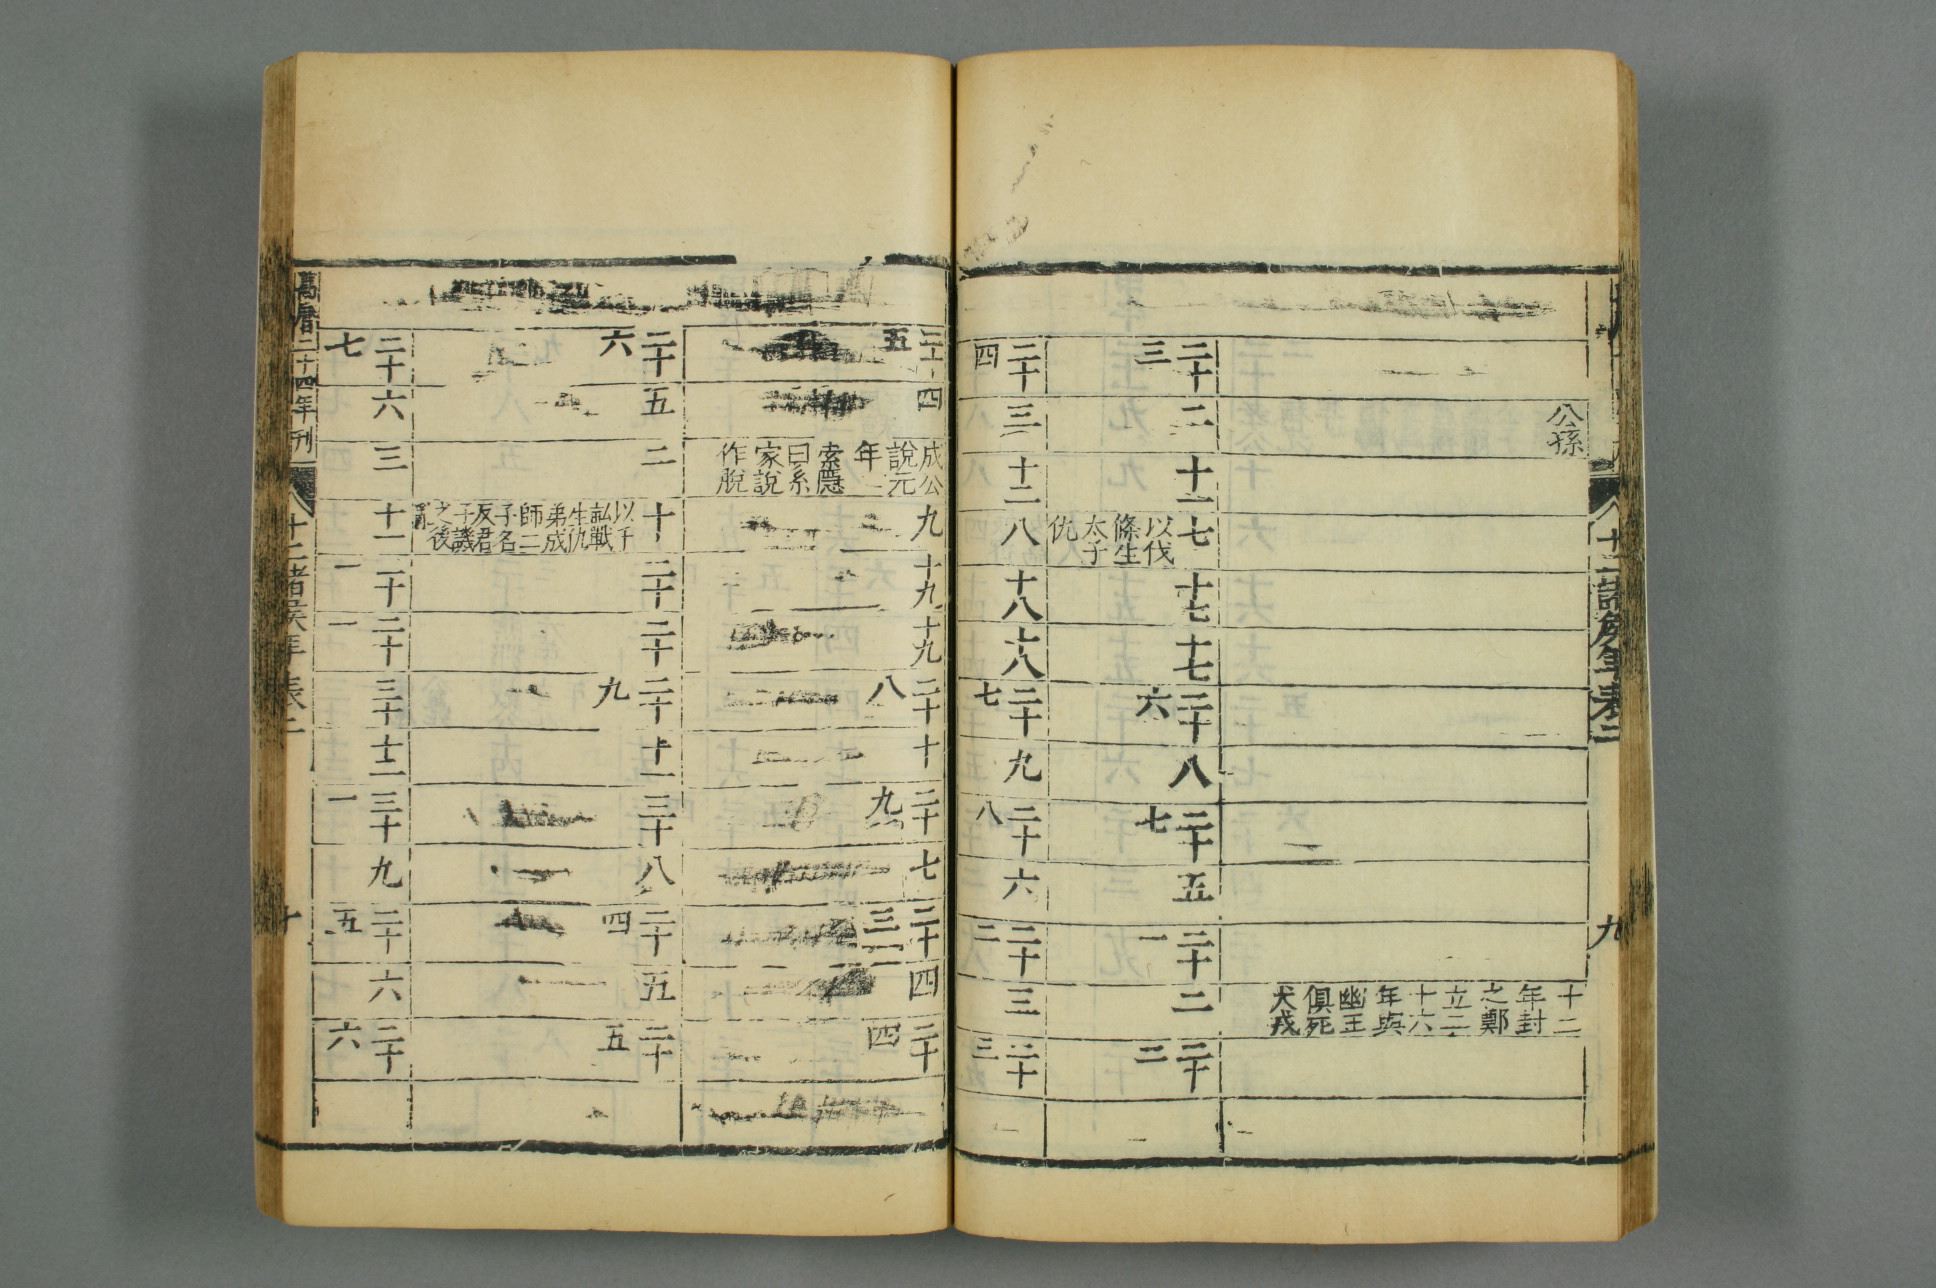 十二諸侯年表二
九
公孫
十二年封之鄭立二十六年與幽王俱死犬戎
二十三
二
十一
七 以伐條生太子仇
十七
十七
二十六
八
二十七
五
二十一
二
二十二
二十四
三
十二
八
十八
十八
二十七
九
二十八
六
二十二
三
二十三
二十五
四
成公說元年 索隱曰系家說作脫
九
十九
十九
二十八
十
二十九
七
二十三
四
二十四
二十六
五
二
十 以千畝戰生仇弟成師二子名反君子譏之後亂
二十
二十
二十九
十一
三十
八
二十四
五
二十五
二十七
六
三
十一
二十一
二十一
三十
十二
三十一
九
二十五
六
二十六
萬曆二十四年刊
十二諸侯年表二
十